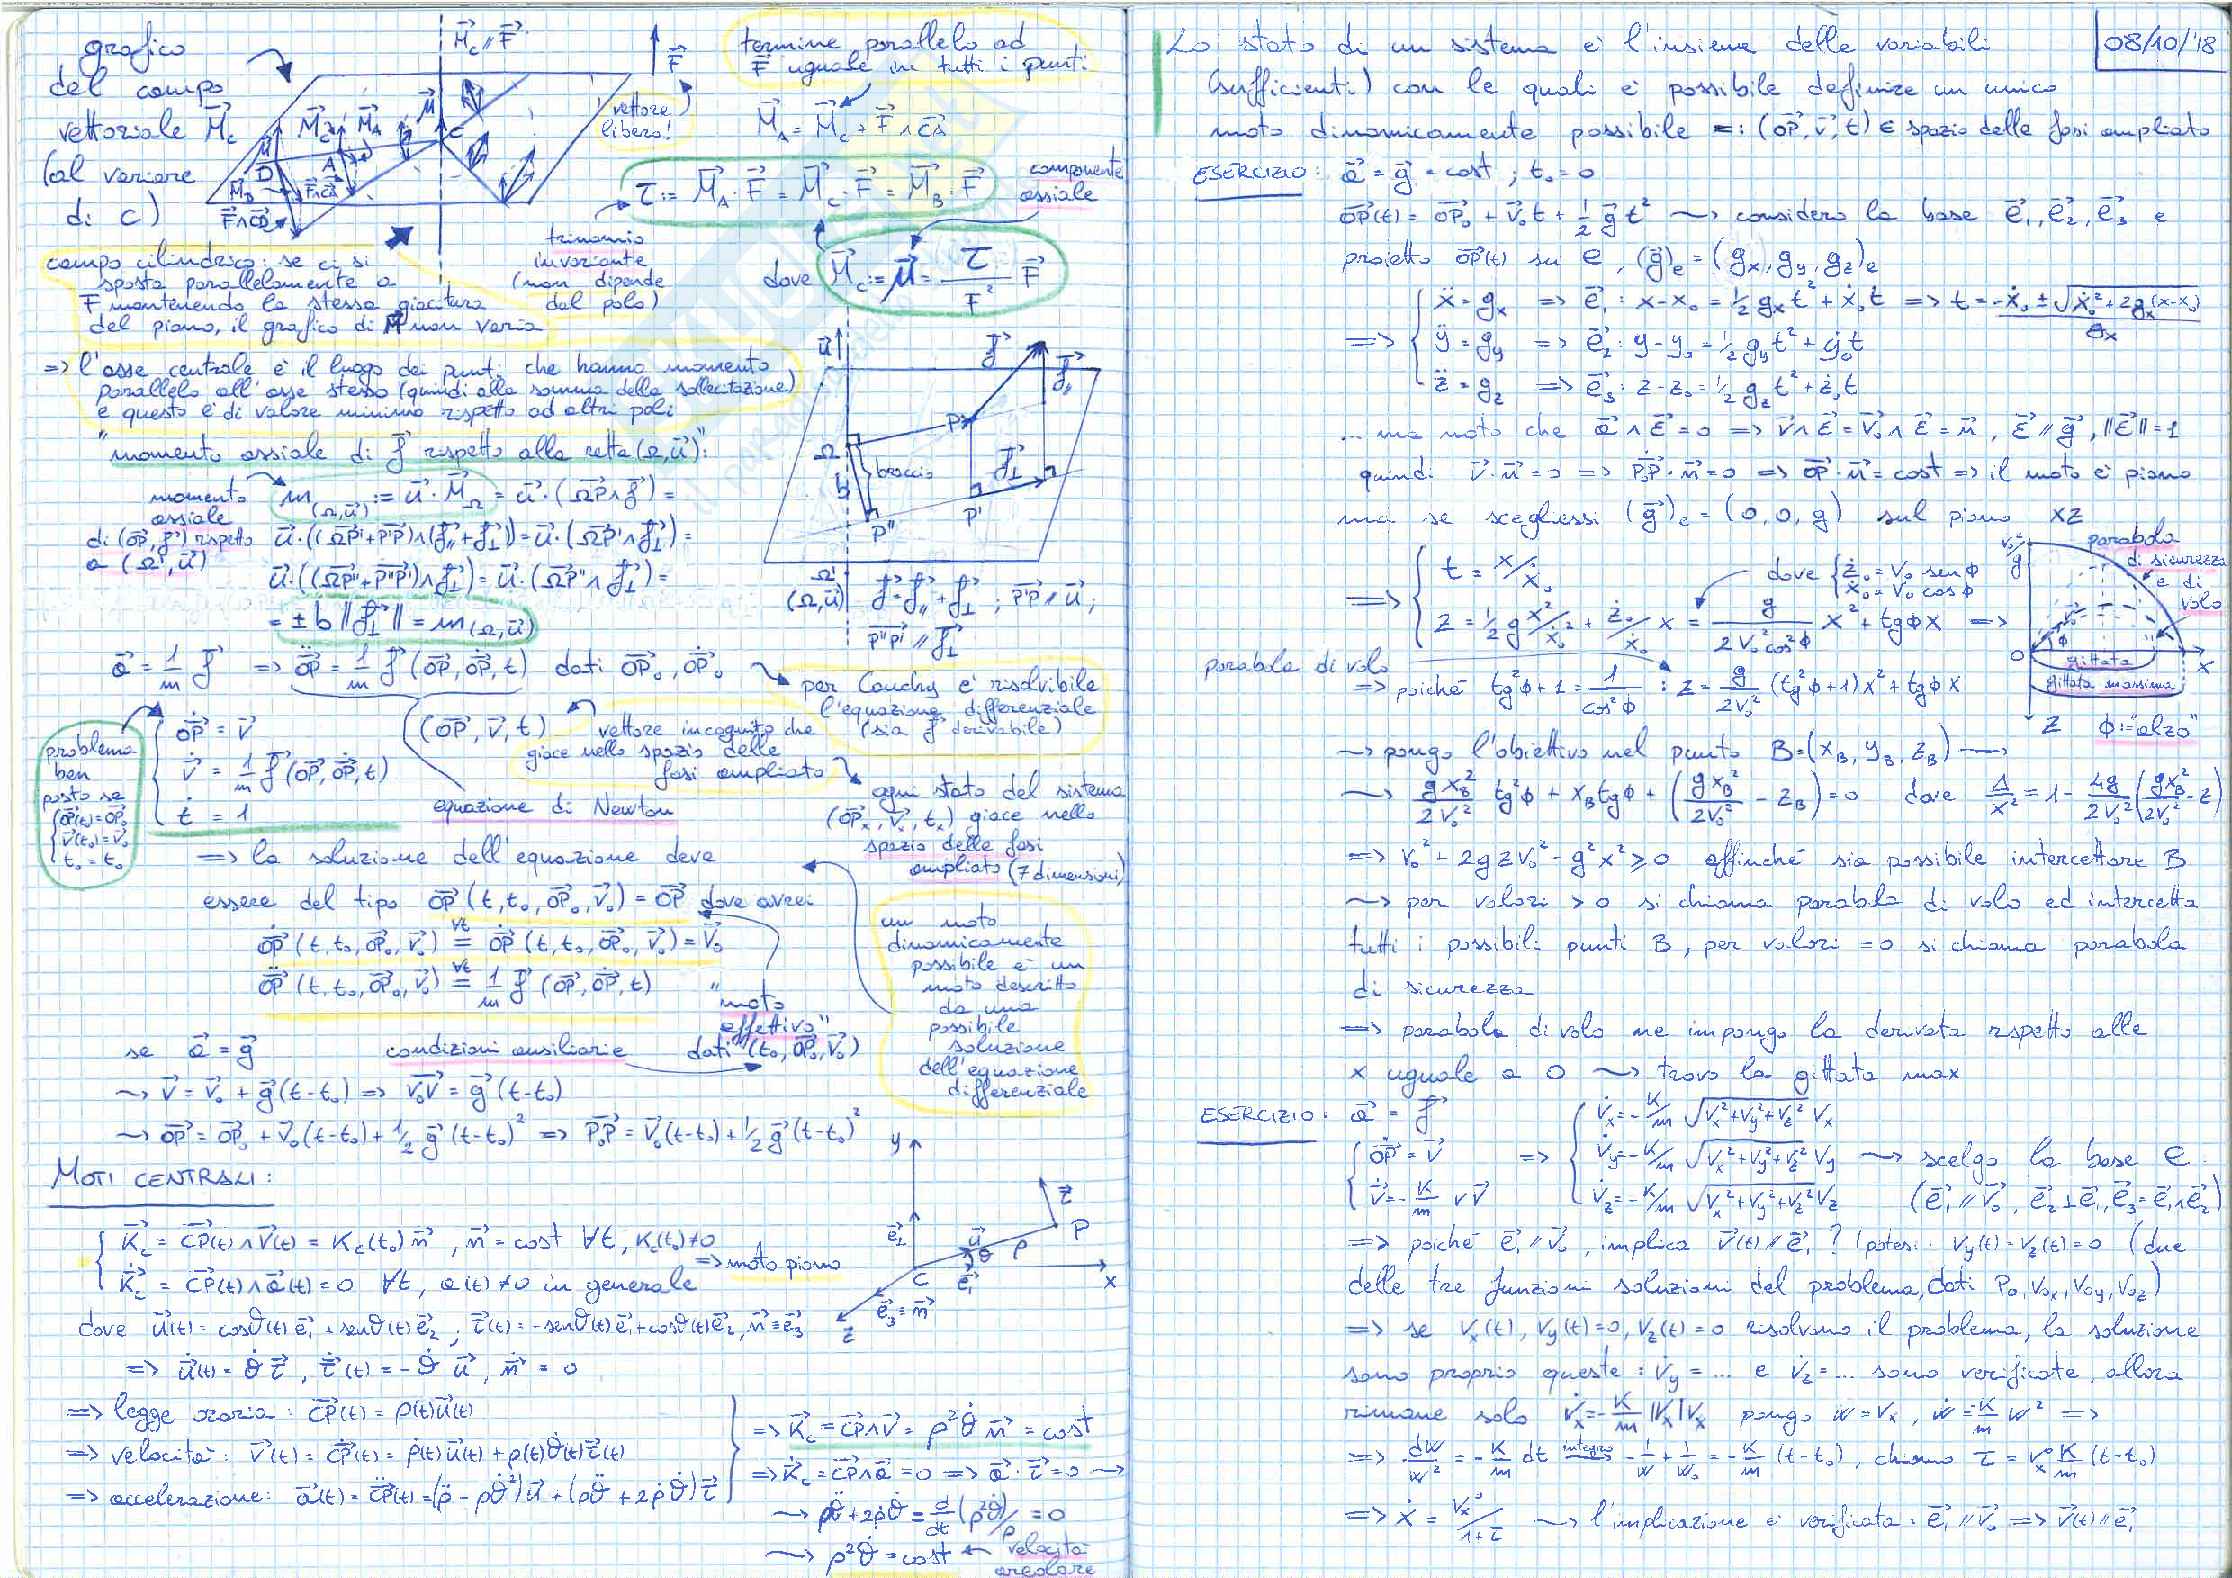 grafico
del campo
vettoriale M⃗c
(al variare
di C)
M⃗c // F⃗
F⃗
vettore
libero!
termine parallelo ad
F⃗ uguale in tutti i punti
M⃗_A = M⃗_C + F⃗ ∧ CA⃗
τ := M⃗_A · F⃗ = M⃗_C · F⃗ = M⃗_B · F⃗
componente
assiale
trinomio
invariante
(non dipende
dal polo)
dove M⃗_C := μ⃗ = τ/F² F⃗
campo cilindrico: se ci si
sposta parallelamente a
F mantenendo la stessa giacitura
del piano, il grafico di M⃗ non varia
=> l'asse centrale è il luogo dei punti che hanno momento
parallelo all'asse stesso (quindi alla somma della sollecitazione)
e questo è di valore minimo rispetto ad altri poli
"momento assiale di f⃗ rispetto alla retta (Ω,u⃗)":
momento
assiale
di (OP⃗, f⃗) rispetto
a (Ω, u⃗)
m_(Ω,u⃗) := u⃗ · M⃗_Ω = u⃗ · (ΩP⃗ ∧ f⃗) =
u⃗·((ΩP'⃗ + P'P⃗) ∧ (f⃗_// + f⃗_⊥)) = u⃗·(ΩP'⃗ ∧ f⃗_⊥) =
u⃗·((ΩP''⃗ + P''P'⃗) ∧ f⃗_⊥) = u⃗·(ΩP''⃗ ∧ f⃗_⊥) =
= ± b ||f⃗_⊥|| = m_(Ω,u⃗)
u⃗
f⃗
f⃗_//
P
Ω
braccio
b
f⃗_⊥
P''
P'
Ω'
(Ω,u⃗)
f⃗ = f⃗_// + f⃗_⊥ ; P'P⃗ // u⃗ ;
P''P'⃗ // f⃗_⊥
a⃗ = 1/m f⃗ => OP⃗̈ = 1/m f⃗ (OP⃗, OP⃗̇, t) dati OP⃗₀, OP⃗̇₀
per Cauchy è risolvibile
l'equazione differenziale
(sia f⃗ derivabile)
problema
ben
posto se
OP⃗(t₀) = OP⃗₀
v⃗(t₀) = v⃗₀
t₀ = t₀
OP⃗̇ = v⃗
v⃗̇ = 1/m f⃗ (OP⃗, OP⃗̇, t)
ṫ = 1
(OP⃗, v⃗, t)
vettore incognito che
giace nello spazio delle
fasi ampliato
equazione di Newton
ogni stato del sistema
(OP⃗x, v⃗x, tx) giace nello
spazio delle fasi
ampliato (7 dimensioni)
=> la soluzione dell'equazione deve
essere del tipo OP⃗ (t, t₀, OP⃗₀, v⃗₀) = OP⃗ dove avrei
OP⃗̇ (t, t₀, OP⃗₀, v⃗₀) =^∀t OP⃗̇ (t, t₀, OP⃗₀, v⃗₀) = v⃗₀
OP⃗̈ (t, t₀, OP⃗₀, v⃗₀) =^∀t 1/m f⃗ (OP⃗, OP⃗̇, t)
"moto
effettivo"
un moto
dinamicamente
possibile è un
moto descritto
da una
possibile
soluzione
dell'equazione
differenziale
se a⃗ = g⃗
condizioni ausiliarie
dati (t₀, OP⃗₀, v⃗₀)
~> v⃗ = v⃗₀ + g⃗ (t-t₀) => v₀v⃗ = g⃗ (t-t₀)
~> OP⃗ = OP⃗₀ + v⃗₀ (t-t₀) + 1/2 g⃗ (t-t₀)² => P₀P⃗ = v⃗₀ (t-t₀) + 1/2 g⃗ (t-t₀)²
MOTI CENTRALI:
K⃗c = CP⃗(t) ∧ v⃗(t) = Kc(t₀) n⃗, n⃗ = cost ∀t, Kc(t₀) ≠ 0
=> moto piano
K⃗̇c = CP⃗(t) ∧ a⃗(t) = 0 ∀t, a(t) ≠ 0 in generale
dove u⃗(t) = cosϑ(t) e⃗₁ + senϑ(t) e⃗₂ ; τ⃗(t) = -senϑ(t) e⃗₁ + cosϑ(t) e⃗₂, n⃗ ≡ e⃗₃
=> u⃗̇(t) = ϑ̇ τ⃗, τ⃗̇(t) = -ϑ̇ u⃗, n⃗̇ = 0
y
τ⃗
P
e⃗₂
u⃗
ϑ
ρ
C
e⃗₁
x
e⃗₃ = n⃗
z
=> legge oraria: CP⃗(t) = ρ(t) u⃗(t)
=> velocità: v⃗(t) = CP⃗̇(t) = ρ̇(t) u⃗(t) + ρ(t) ϑ̇(t) τ⃗(t)
=> accelerazione: a⃗(t) = CP⃗̈(t) = (ρ̈ - ρϑ̇²) u⃗ + (ρϑ̈ + 2ρ̇ϑ̇) τ⃗
=> K⃗c = CP⃗ ∧ v⃗ = ρ²ϑ̇ n⃗ = cost
=> K⃗̇c = CP⃗ ∧ a⃗ = 0 => a⃗ · τ⃗ = 0 ~>
~> ρϑ̈ + 2ρ̇ϑ̇ = d/dt (ρ²ϑ̇)/ρ = 0
~> ρ²ϑ̇ = cost ← velocità
areolare
08/10/'18
Lo stato di un sistema è l'insieme delle variabili
(sufficienti) con le quali è possibile definire un unico
moto dinamicamente possibile =: (OP⃗, v⃗, t) ∈ spazio delle fasi ampliato
ESERCIZIO: a⃗ = g⃗ = cost ; t₀ = 0
OP⃗(t) = OP⃗₀ + v⃗₀ t + 1/2 g⃗ t² ~> considero la base e⃗₁, e⃗₂, e⃗₃ e
proietto OP⃗(t) su e, (g⃗)e = (gx, gy, gz)e
ẍ = gx => e⃗₁: x-x₀ = 1/2 gx t² + ẋ₀ t => t = (-ẋ₀ ± √(ẋ₀² + 2gx(x-x₀)))/gx
=> ÿ = gy => e⃗₂: y-y₀ = 1/2 gy t² + ẏ₀ t
z̈ = gz => e⃗₃: z-z₀ = 1/2 gz t² + ż₀ t
... ma noto che a⃗ ∧ E⃗ = 0 => v⃗ ∧ E⃗ = v⃗₀ ∧ E⃗ = n⃗, E⃗ // g⃗, ||E⃗|| = 1
quindi v⃗ · n⃗ = 0 => P₀P⃗̇ · n⃗ = 0 => OP⃗ · n⃗ = cost => il moto è piano
ma se scegliessi (g⃗)e = (0, 0, g) sul piano xz
=> t = x/ẋ₀
dove ż₀ = v₀ senϕ
ẋ₀ = v₀ cosϕ
z = 1/2 g x²/ẋ₀² + ż₀/ẋ₀ x = g/(2v₀² cos²ϕ) x² + tgϕ x =>
parabola
di sicurezza
e di
volo
v₀²/g
ϕ
O
gittata
gittata massima
x
z
ϕ: "alzo"
parabola di volo
=> poiché tg²ϕ + 1 = 1/cos²ϕ : z = g/2v₀² (tg²ϕ + 1) x² + tgϕ x
~> pongo l'obiettivo nel punto B = (xB, yB, zB) ~>
~> g xB²/2v₀² tg²ϕ + xB tgϕ + (g xB²/2v₀² - zB) = 0 dove Δ/x² = 1 - 4g/2v₀² (g xB²/2v₀² - z)
=> v₀² + 2gzv₀² - g²x² ⩾ 0 affinché sia possibile intercettare B
~> per valori > 0 si chiama parabola di volo ed intercetta
tutti i possibili punti B, per valori = 0 si chiama parabola
di sicurezza
=> parabola di volo ne impongo la derivata rispetto alle
x uguale a 0 ~> trovo la gittata max
ESERCIZIO: a⃗ = f⃗
OP⃗̇ = v⃗
v⃗̇ = -K/m v v⃗
=> v̇x = -K/m √(vx² + vy² + vz²) vx
v̇y = -K/m √(vx² + vy² + vz²) vy ~> scelgo la base e
v̇z = -K/m √(vx² + vy² + vz²) vz (e⃗₁ // v⃗₀, e⃗₂ ⊥ e⃗₁, e⃗₃ = e⃗₁ ∧ e⃗₂)
=> poiché e⃗₁ // v⃗₀, implica v⃗(t) // e⃗₁ ? Ipotesi: vy(t) = vz(t) = 0 (due
delle tre funzioni soluzioni del problema, dati P₀, v₀x, v₀y, v₀z)
=> se vx(t), vy(t) = 0, vz(t) = 0 risolvono il problema, la soluzione
sono proprio queste: v̇y = ... e v̇z = ... sono verificate, allora
rimane solo v̇x = -K/m |vx| vx pongo w = vx, ẇ = -K/m w² =>
=> dw/w² = -K/m dt integro -1/w + 1/w₀ = -K/m (t-t₀), chiamo τ = vx⁰ K/m (t-t₀)
=> ẋ = vx⁰/1+τ ~> l'implicazione è verificata: e⃗₁ // v⃗₀ => v⃗(t) // e⃗₁